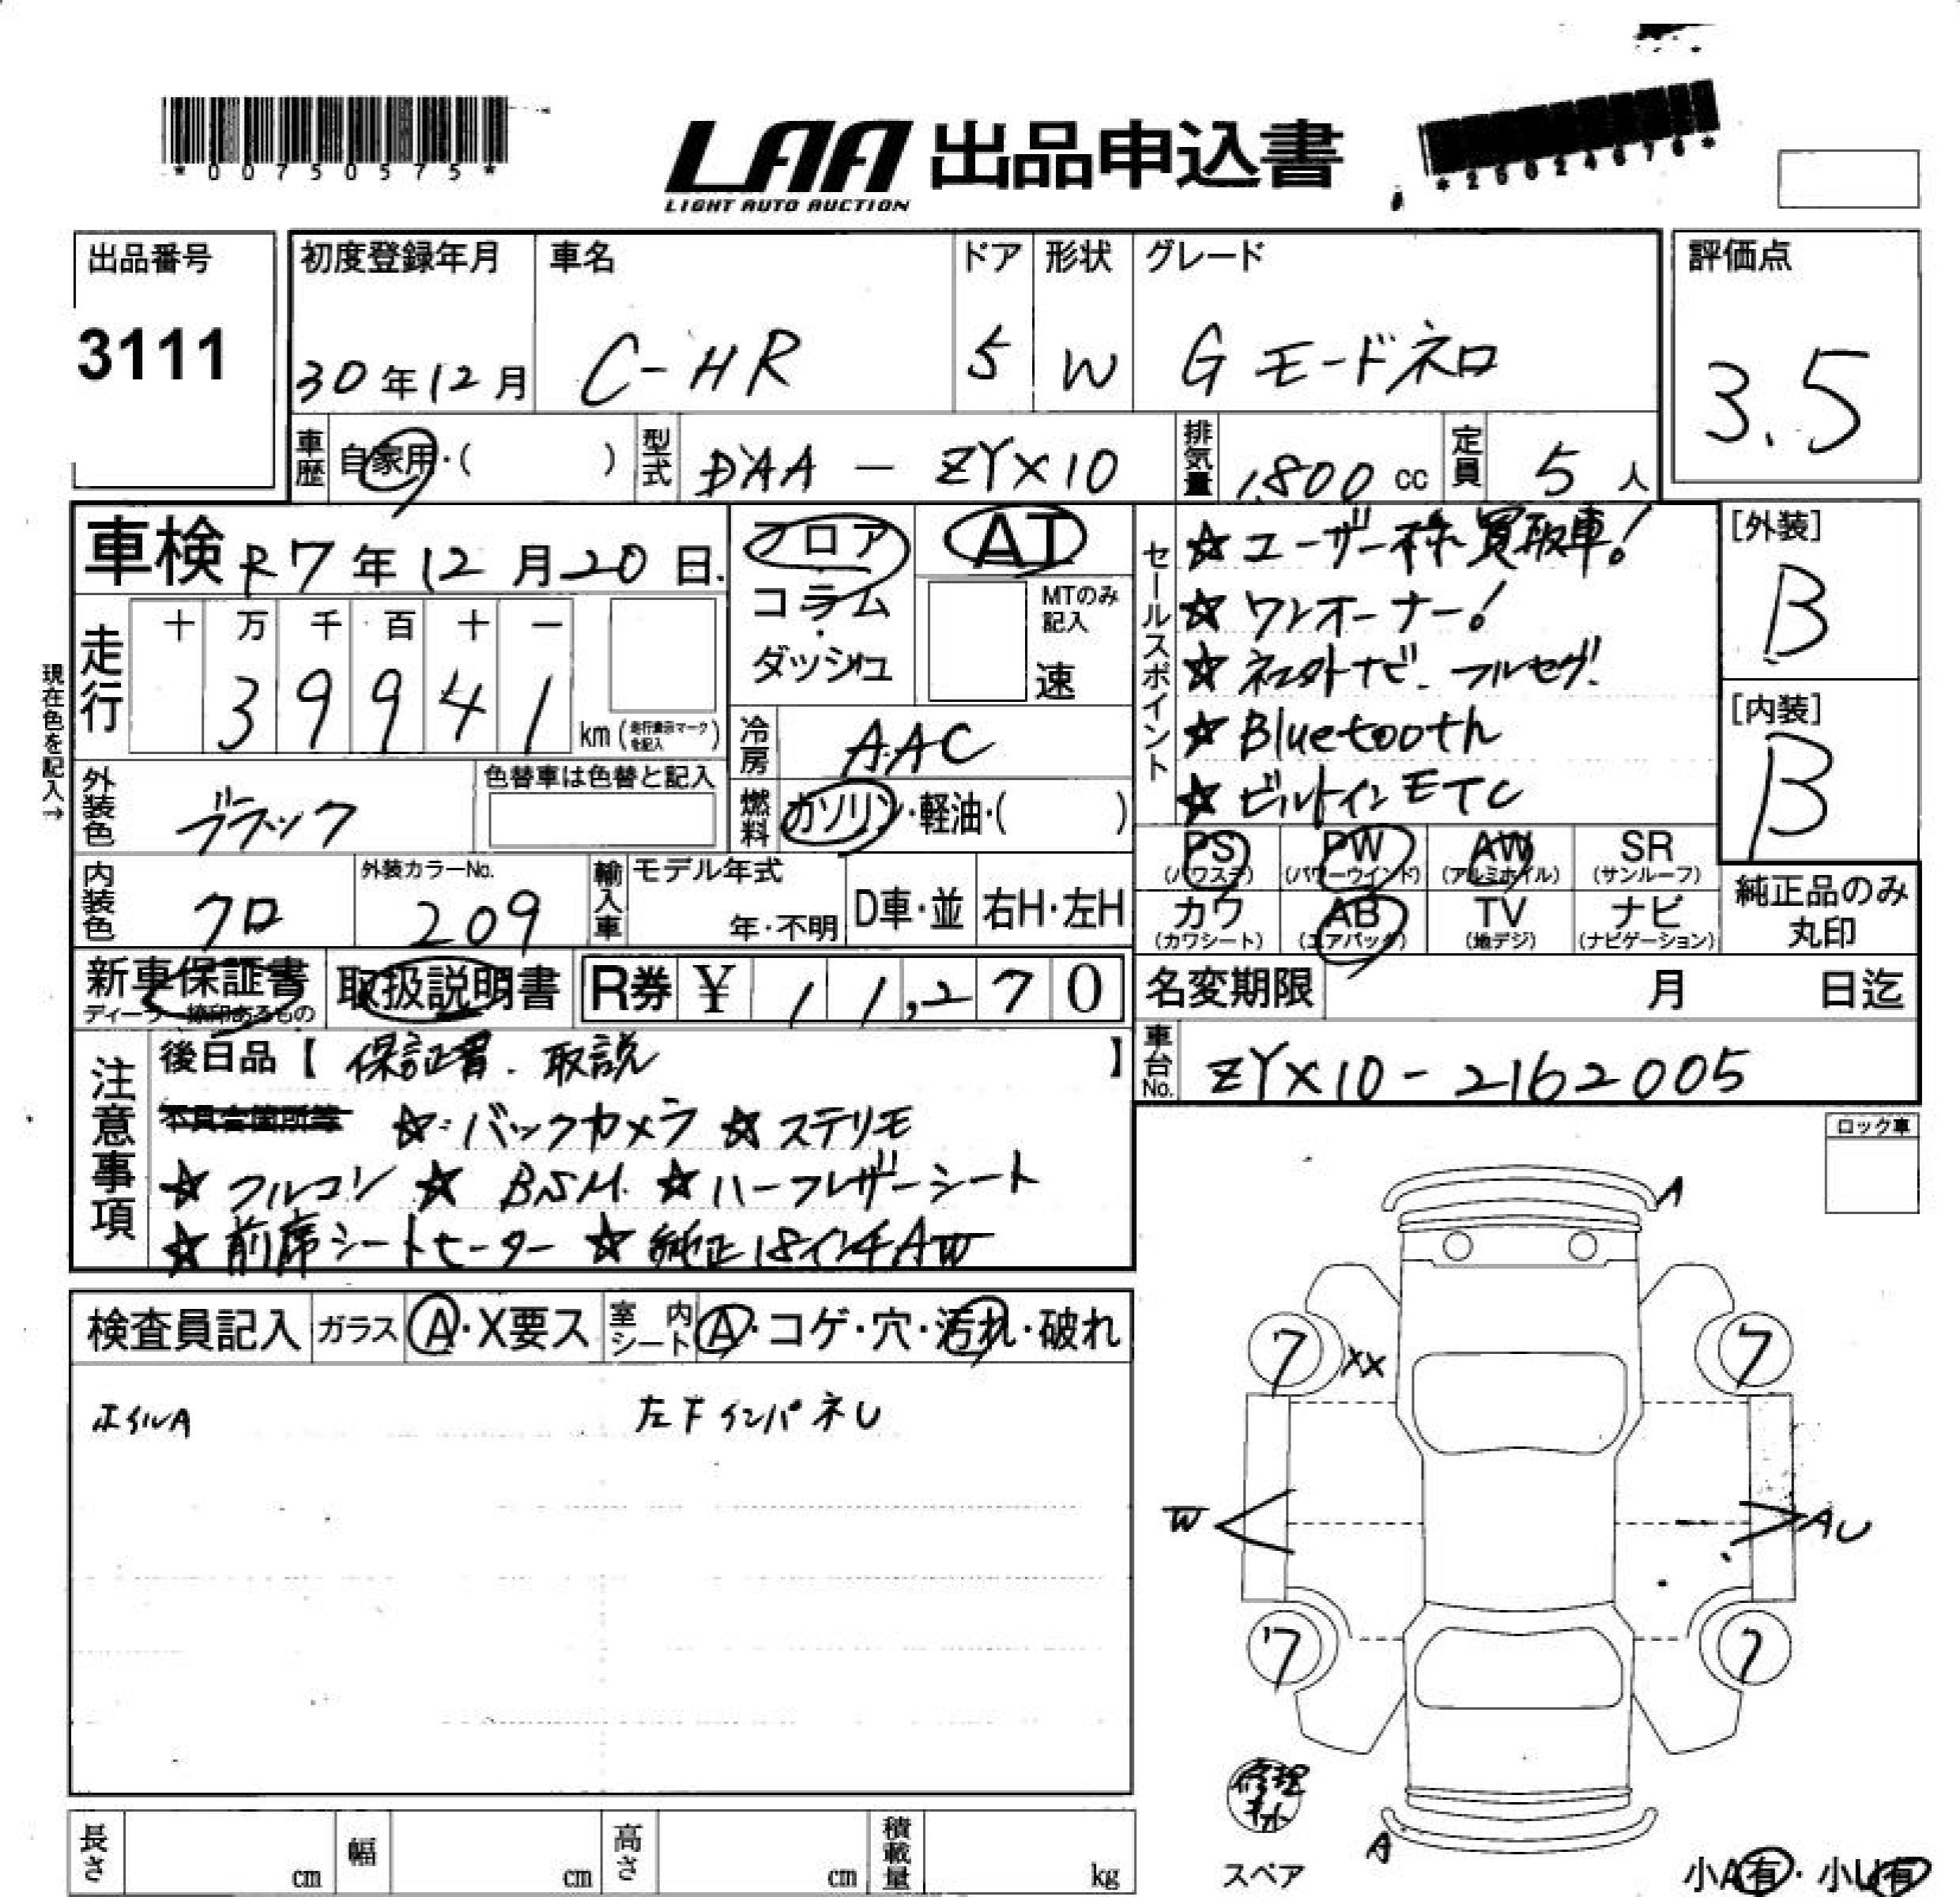 *00750575*
LAA 出品申込書
LIGHT AUTO AUCTION
出品番号 初度登録年月 車名 ドア 形状 グレード 評価点
3111 30年12月 C-HR 5 W G モードネロ 3.5
車歴 自家用・( ) 型式 DAA - ZYX10 排気量 1,800 cc 定員 5 人
車検 R7年12月20日 フロア AT セールスポイント ☆ユーザー様買取車! [外装]
コラム・ MTのみ記入 ☆ワンオーナー! B
ダッシュ 速 ☆ネスタナビ. フルセグ.
現在色を記入→ 走行 十 万 千 百 十 一
3 9 9 4 1 km (走行表示マークを記入) 冷房 AAC ☆Bluetooth [内装]
外装色 ブラック 色替車は色替と記入 燃料 ガソリン・軽油・( ) ☆ビルトインETC B
PS (パワステ) PW (パワーウインド) AW (アルミホイル) SR (サンルーフ)
内装色 クロ 外装カラーNo. 209 輸入車 モデル年式 年・不明 D車・並 右H・左H
カワ (カワシート) AB (エアバック) TV (地デジ) ナビ (ナビゲーション) 純正品のみ丸印
新車保証書 ディーラー捺印あるもの 取扱説明書 R券 ¥ 11,270 名変期限 月 日迄
注意事項 後日品【 保証書. 取説 】 車台No. ZYX10-2162005
不具合箇所等 ☆バックカメラ ☆ステリモ
☆フルコン ☆BSM. ☆ハーフレザーシート
☆前席シートヒーター ☆純正18インチAW
ロック車
検査員記入 ガラス A・X要ス 室内シート A・コゲ・穴・汚れ・破れ
ホイルA 左FインパネU
A
7 XX 7
W AU
7 7
修理キット
スペア A 小A有・小U有
長さ cm 幅 cm 高さ cm 積載量 kg